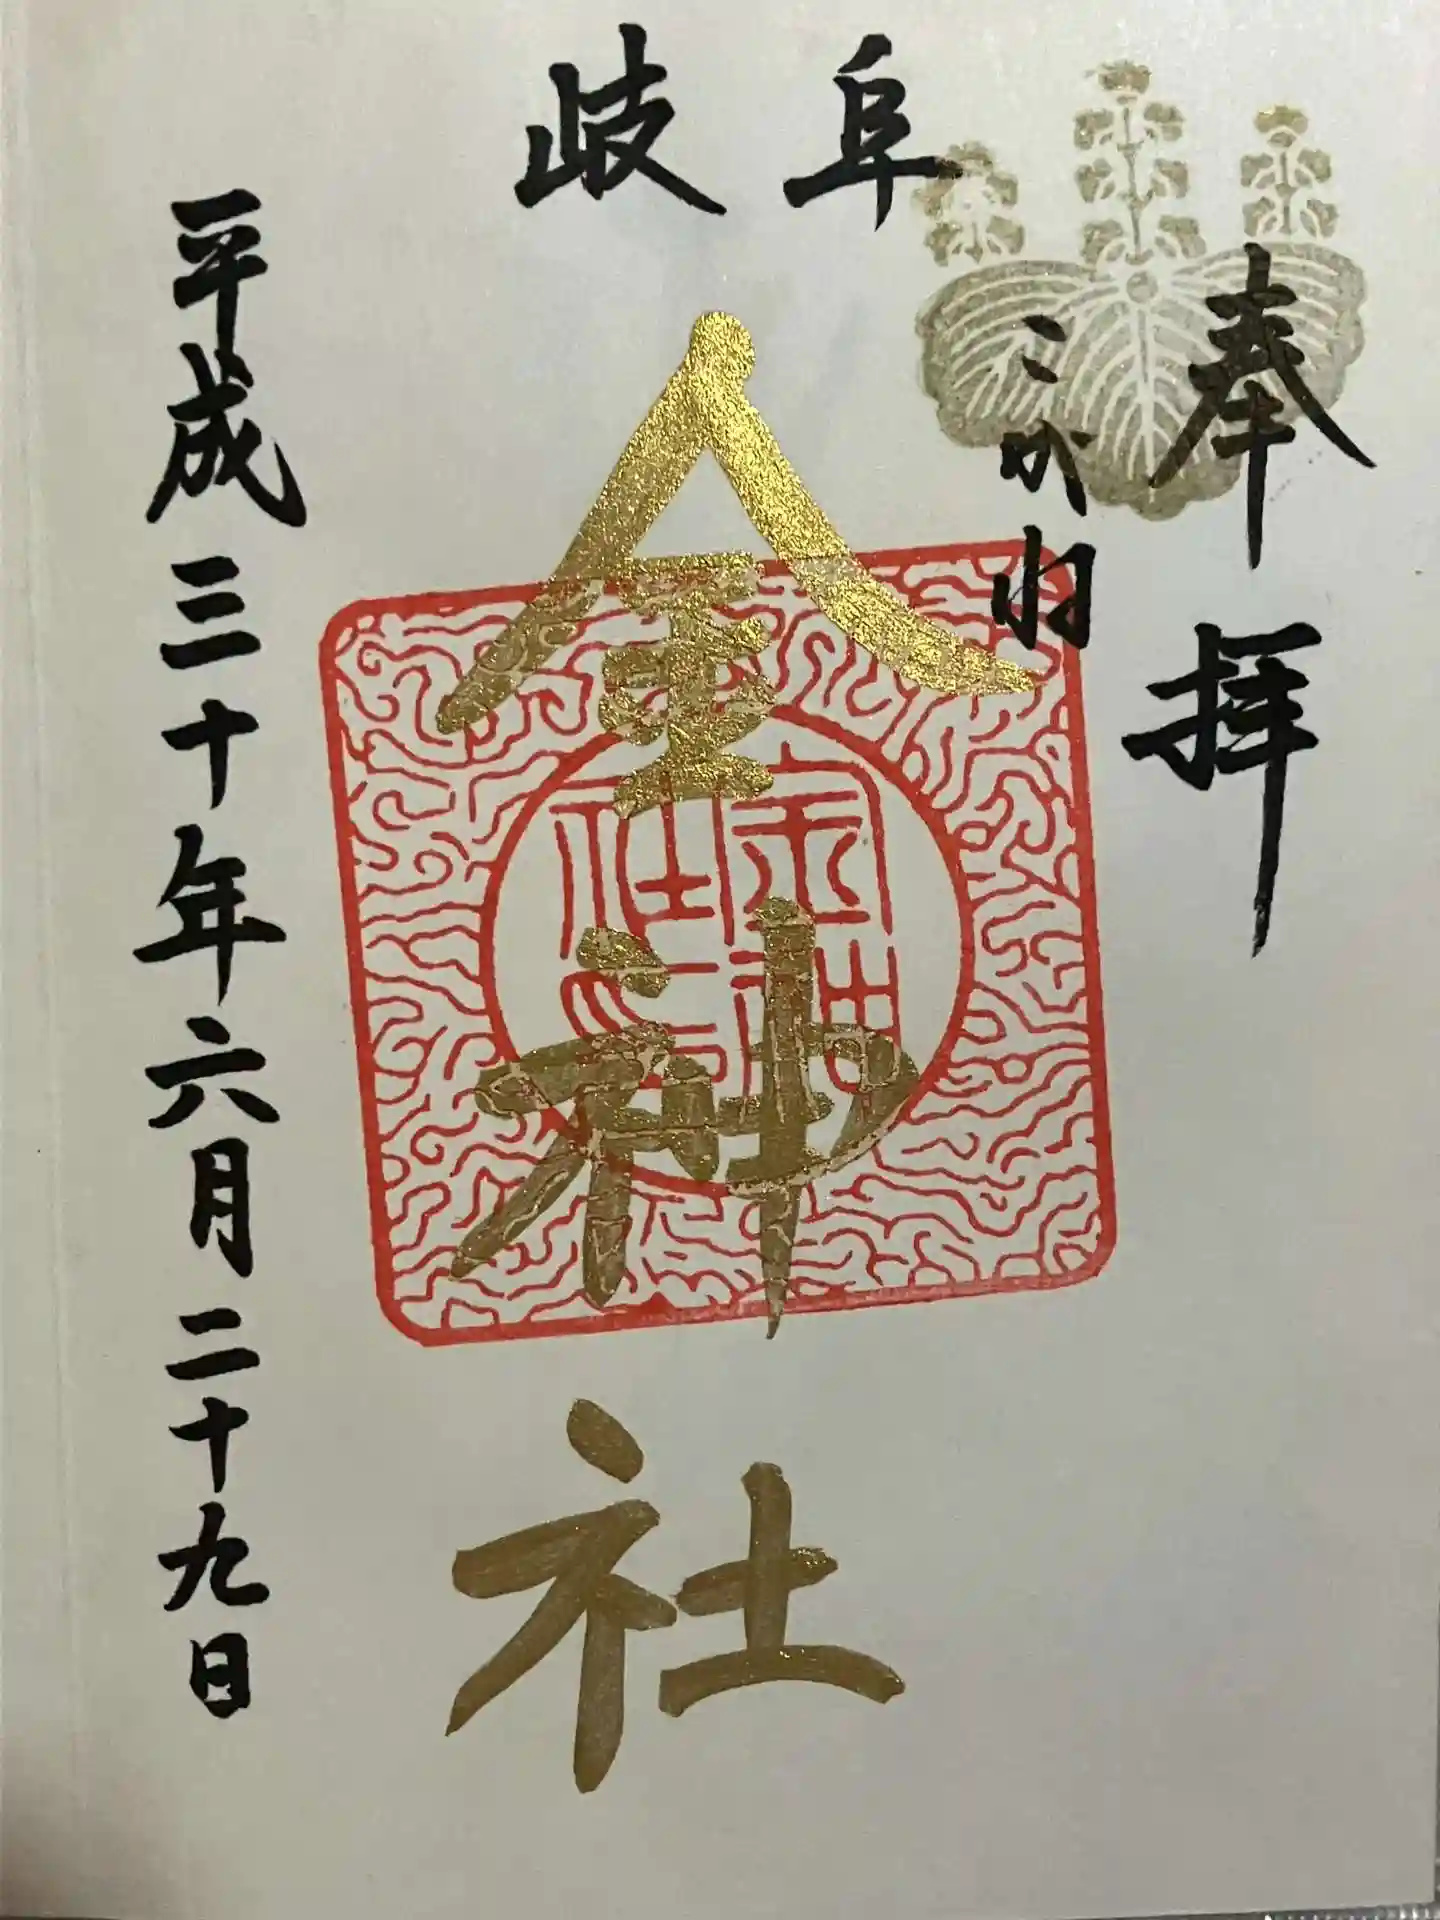 奉拝
こがね
岐阜
金神社
金神社印
平成三十年六月二十九日